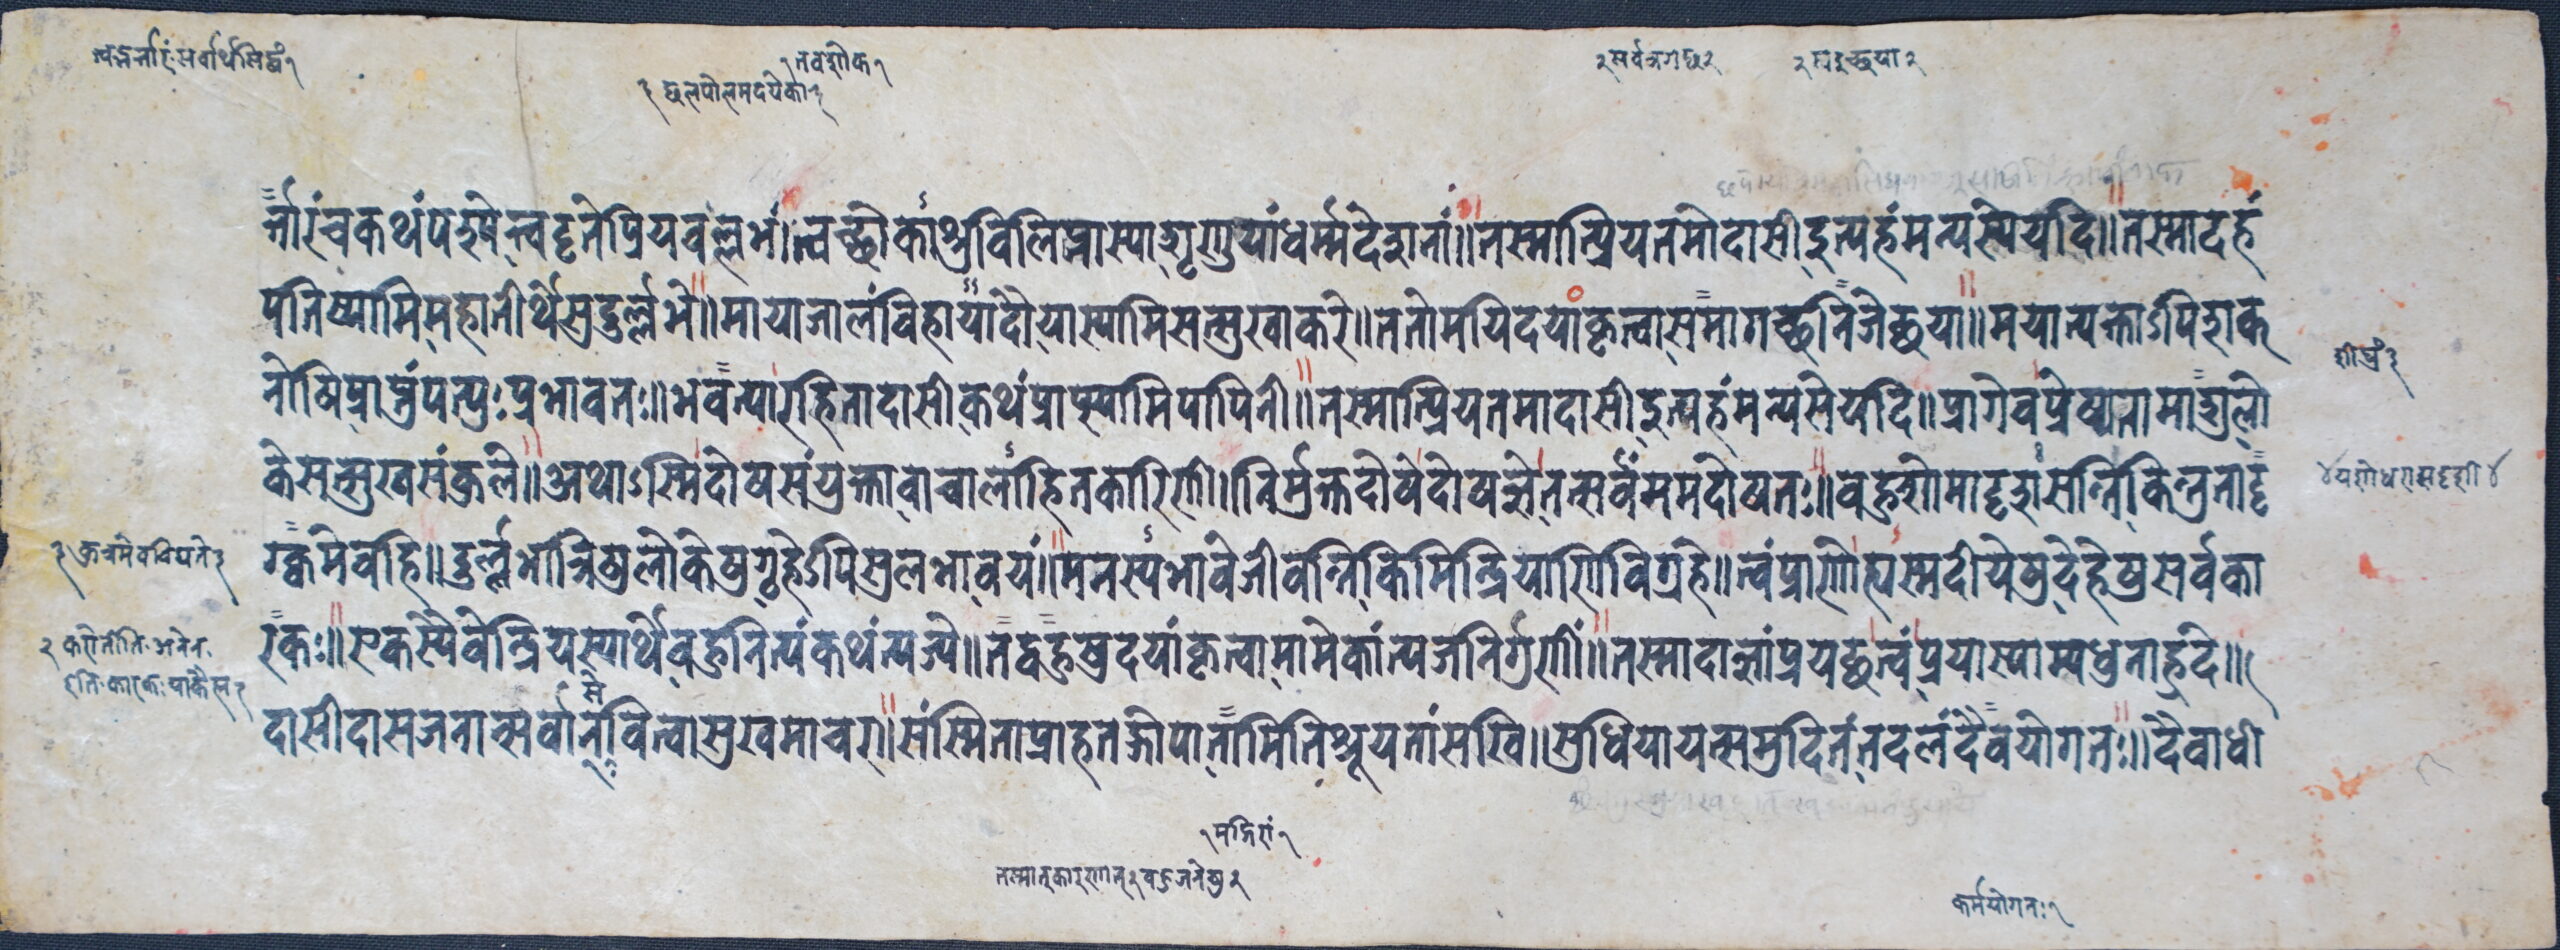 र्त्तारंचकथंपश्येत्त्वदृतेप्रियवल्लभं॥त्वच्छोकाश्रुविलिप्तास्याशृणुयांधर्म्मदेशनां॥तस्मात्प्रियतमोदासीइत्यहंमन्यस्येयदि॥तस्मादहं
पतिष्यामिमहातीर्थेसुदुर्ल्लभे॥मायाजालंविहायादौयास्यामिसत्सुखाकरे॥ततोमयिदयांकृत्वासमागच्छनिजेच्छया॥मयात्यक्ताऽपिशक
नोषिप्राप्तुंपत्युःप्रभावतः॥भवत्यारहितादासीकथंप्राप्स्यामिपापिनी॥तस्मात्प्रियतमादासीइत्यहंमन्यसेयदि॥प्रागेवप्रेष्यतामाशुलो
केसत्सुखसंकुले॥अथाऽस्मिदोषसंयुक्तावाचालाहितकारिणी॥निर्मुक्तदोषेदोषज्ञेतत्सर्वंममदोषतः॥बहुशोमादृशासन्तिकिन्तुत्वादृ
ग्क्वमेवहि॥दुर्ल्लभात्रिषुलोकेषुगृहेऽपिसुलभावयं॥मनस्यभावेजीवन्तिकिमिन्द्रियाणिविग्रहे॥त्वंप्राणोह्यस्मदीयेषुदेहेषुसर्वका
रकः॥एकस्यैवेन्द्रियस्यार्थेबहुनित्यंकथंत्यज्ये॥तद्बहुषुदयांकृत्वामामेकांत्यजनिर्गुणीं॥तस्मादाज्ञांप्रयच्छत्वंप्रयास्याम्यधुनाहृदे॥
दासीदासजनान्सर्वान्वित्वासुखमाचर॥संस्मिताप्राहतज्गोपातामितिश्रूयतांसखि॥सुधियायत्समुदितंतदलंदैवयोगतः॥दैवाधी
सर्वार्थसिद्धं१
१तवशोक१
२सर्वत्रगछ२
शीघ्रं३
४यशोधरासदृशी४
तस्मात्कारणात्२बहुजनेषु२
कर्मयोगतः१